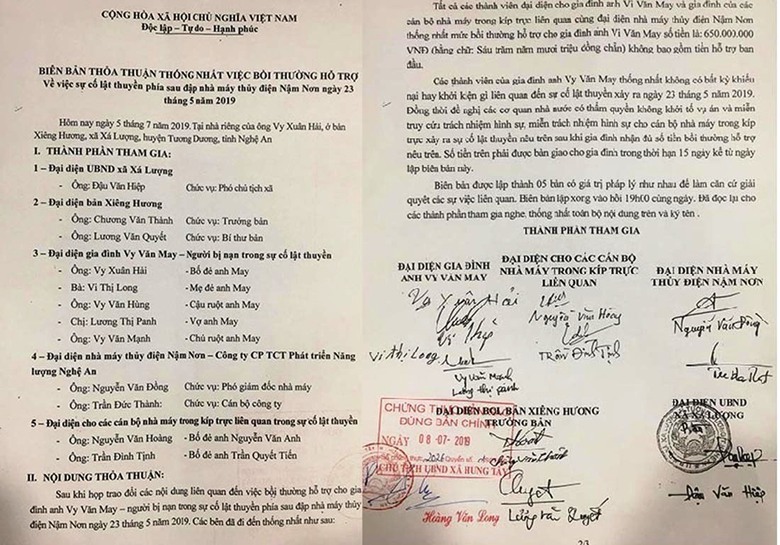 CỘNG HÒA XÃ HỘI CHỦ NGHĨA VIỆT NAM
Độc lập – Tự do – Hạnh phúc
BIÊN BẢN THỎA THUẬN THỐNG NHẤT VIỆC BỒI THƯỜNG HỖ TRỢ
Về việc sự cố lật thuyền phía sau đập nhà máy thủy điện Nậm Nơn ngày 23
tháng 5 năm 2019
Hôm nay ngày 5 tháng 7 năm 2019. Tại nhà riêng của ông Vy Xuân Hải, ở bản
Xiêng Hương, xã Xá Lượng, huyện Tương Dương, tỉnh Nghệ An
I. THÀNH PHẦN THAM GIA:
1 – Đại diện UBND xã Xá Lượng
- Ông: Đậu Văn Hiệp Chức vụ: Phó chủ tịch xã
2 – Đại diện bản Xiêng Hương
- Ông: Chương Văn Thành Chức vụ: Trưởng bản
- Ông: Lương Văn Quyết Chức vụ: Bí thư bản
3 – Đại diện gia đình Vy Văn May – Người bị nạn trong sự cố lật thuyền
- Ông: Vy Xuân Hải - Bố đẻ anh May
- Bà: Vi Thị Long - Mẹ đẻ anh May
- Ông: Vy Văn Hùng - Cậu ruột anh May
- Chị: Lương Thị Panh - Vợ anh May
- Ông: Vy Văn Mạnh - Chú ruột anh May
4 – Đại diện nhà máy thủy điện Nậm Nơn – Công ty CP TCT Phát triển Năng
lượng Nghệ An
- Ông: Nguyễn Văn Đồng Chức vụ: Phó giám đốc nhà máy
- Ông: Trần Đức Thành: Chức vụ: Cán bộ công ty
5 – Đại diện cho các cán bộ nhà máy trong kíp trực liên quan trong sự cố lật thuyền
- Ông: Nguyễn Văn Hoàng - Bố đẻ anh Nguyễn Văn Anh
- Ông: Trần Đình Tịnh - Bố đẻ anh Trần Quyết Tiến
II. NỘI DUNG THỎA THUẬN:
Sau khi họp trao đổi các nội dung liên quan đến việc bồi thường hỗ trợ cho gia
đình anh Vy Văn May – người bị nạn trong sự cố lật thuyền phía sau đập nhà máy thủy
điện Nậm Nơn ngày 23 tháng 5 năm 2019. Các bên đã đi đến thống nhất như sau:
Tất cả các thành viên đại diện cho gia đình anh Vi Văn May và gia đình của các
cán bộ nhà máy trong kíp trực liên quan cùng đại diện nhà máy thủy điện Nậm Nơn
thống nhất mức bồi thường hỗ trợ cho gia đình anh Vi Văn May số tiền là: 650.000.000
VNĐ (bằng chữ: Sáu trăm năm mươi triệu đồng chẵn) không bao gồm tiền hỗ trợ ban
đầu.
Các thành viên của gia đình anh Vy Văn May thống nhất không có bất kỳ khiếu
nại hay khởi kiện gì liên quan đến sự cố lật thuyền xảy ra ngày 23 tháng 5 năm 2019.
Đồng thời đề nghị các cơ quan nhà nước có thẩm quyền không khởi tố vụ án và miễn
truy cứu trách nhiệm hình sự, miễn trách nhiệm hình sự cho cán bộ nhà máy trong kíp
trực xảy ra sự cố lật thuyền nêu trên sau khi gia đình nhận đủ số tiền bồi thường hỗ trợ
nêu trên. Số tiền trên phải được bàn giao cho gia đình trong thời hạn 15 ngày kể từ ngày
lập biên bản này.
Biên bản được lập thành 05 bản có giá trị pháp lý như nhau để làm căn cứ giải
quyết các sự việc liên quan. Biên bản lập xong vào hồi 19h00 cùng ngày. Đã đọc lại cho
các thành phần tham gia nghe, thống nhất toàn bộ nội dung trên và ký tên .
THÀNH PHẦN THAM GIA
ĐẠI DIỆN GIA ĐÌNH
ANH VY VĂN MAY
ĐẠI DIỆN CHO CÁC CÁN BỘ
NHÀ MÁY TRONG KÍP TRỰC
LIÊN QUAN
ĐẠI DIỆN NHÀ MÁY
THỦY ĐIỆN NẬM NƠN
Vy Xuân Hải
Vi Thị Long
Vy Văn Mạnh
Lương thị panh
Nguyễn Văn Hoàng
Trần Đình Tịnh
Nguyễn Văn Đồng
ĐẠI DIỆN BQL BẢN XIÊNG HƯƠNG
TRƯỞNG BẢN
Lương Văn Quyết
ĐẠI DIỆN UBND
XÃ XÁ LƯỢNG
Đậu Văn Hiệp
ĐÚNG BẢN CHÍNH
NGÀY 08-07-2019
CHỦ TỊCH UBND XÃ HƯNG TÂY
Hoàng Văn Long
2/3